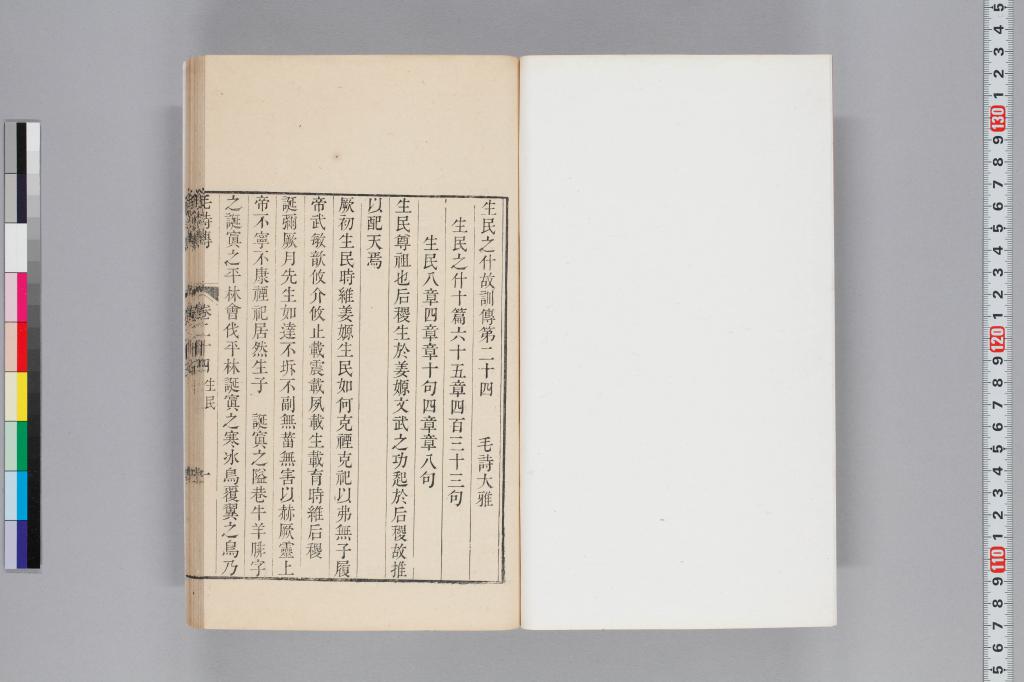 生民之什故訓傳第二十四　毛詩大雅
生民之什十篇六十五章四百三十三句
生民八章四章章十句四章章八句
生民尊祖也后稷生於姜嫄文武之功起於后稷故推
以配天焉
厥初生民時維姜嫄生民如何克禋克祀以弗無子履
帝武敏歆攸介攸止載震載夙載生載育時維后稷
誕彌厥月先生如達不坼不副無菑無害以赫厥靈上
帝不寧不康禋祀居然生子　誕寘之隘巷牛羊腓字
之誕寘之平林會伐平林誕寘之寒冰鳥覆翼之鳥乃
毛詩傳　卷二十四　生民　一
5 4 3 2 1 130 9 8 7 6 5 4 3 2 1 120 9 8 7 6 5 4 3 2 1 110 9 8 7 6 5